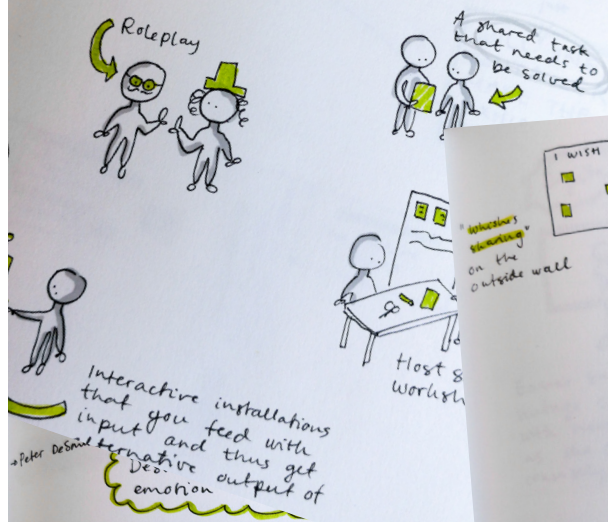 Roleplay
A shared task
that needs to
be solved
I WISH
"whishes
sharing"
on the
outside wall
Host
worksh
Interactive installations
that you feed with
input and thus get
alternative output of
→Peter
Des.
emotion